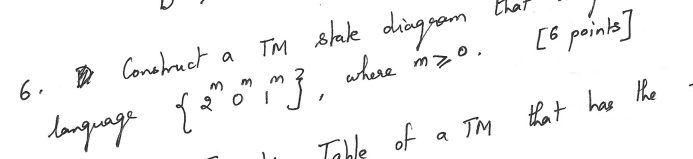 6. Construct a TM state diagram that
language {2^m 0^m 1^m}, where m ≥ 0. [6 points]
Table of a TM that has the